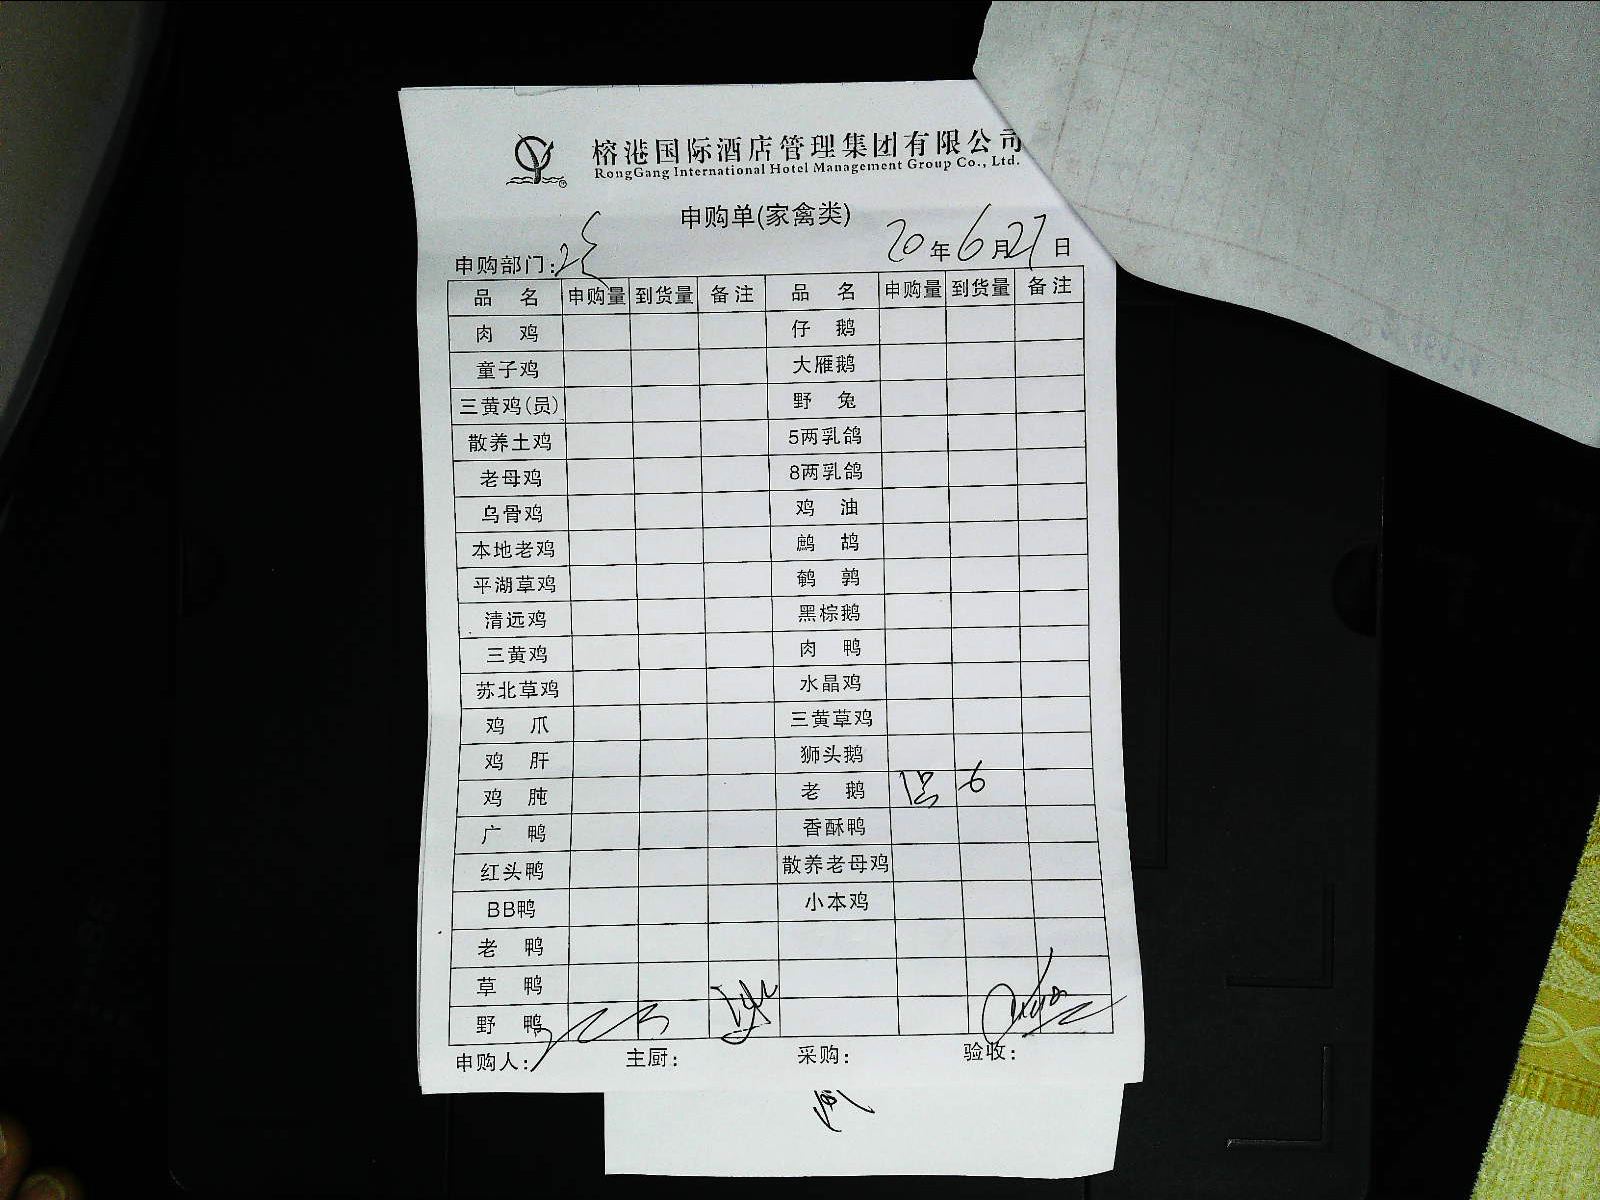 榕港国际酒店管理集团有限公司
RongGang International Hotel Management Group Co., Ltd.
申购单(家禽类)
申购部门: 20年6月27日
品 名 申购量 到货量 备注 品 名 申购量 到货量 备注
肉 鸡 仔 鹅
童子鸡 大雁鹅
三黄鸡(员) 野 兔
散养土鸡 5两乳鸽
老母鸡 8两乳鸽
乌骨鸡 鸡 油
本地老鸡 鹧 鸪
平湖草鸡 鹌 鹑
清远鸡 黑棕鹅
三黄鸡 肉 鸭
苏北草鸡 水晶鸡
鸡 爪 三黄草鸡
鸡 肝 狮头鹅
鸡 肫 老 鹅 6
广 鸭 香酥鸭
红头鸭 散养老母鸡
BB鸭 小本鸡
老 鸭
草 鸭
野 鸭
申购人: 主厨: 采购: 验收: